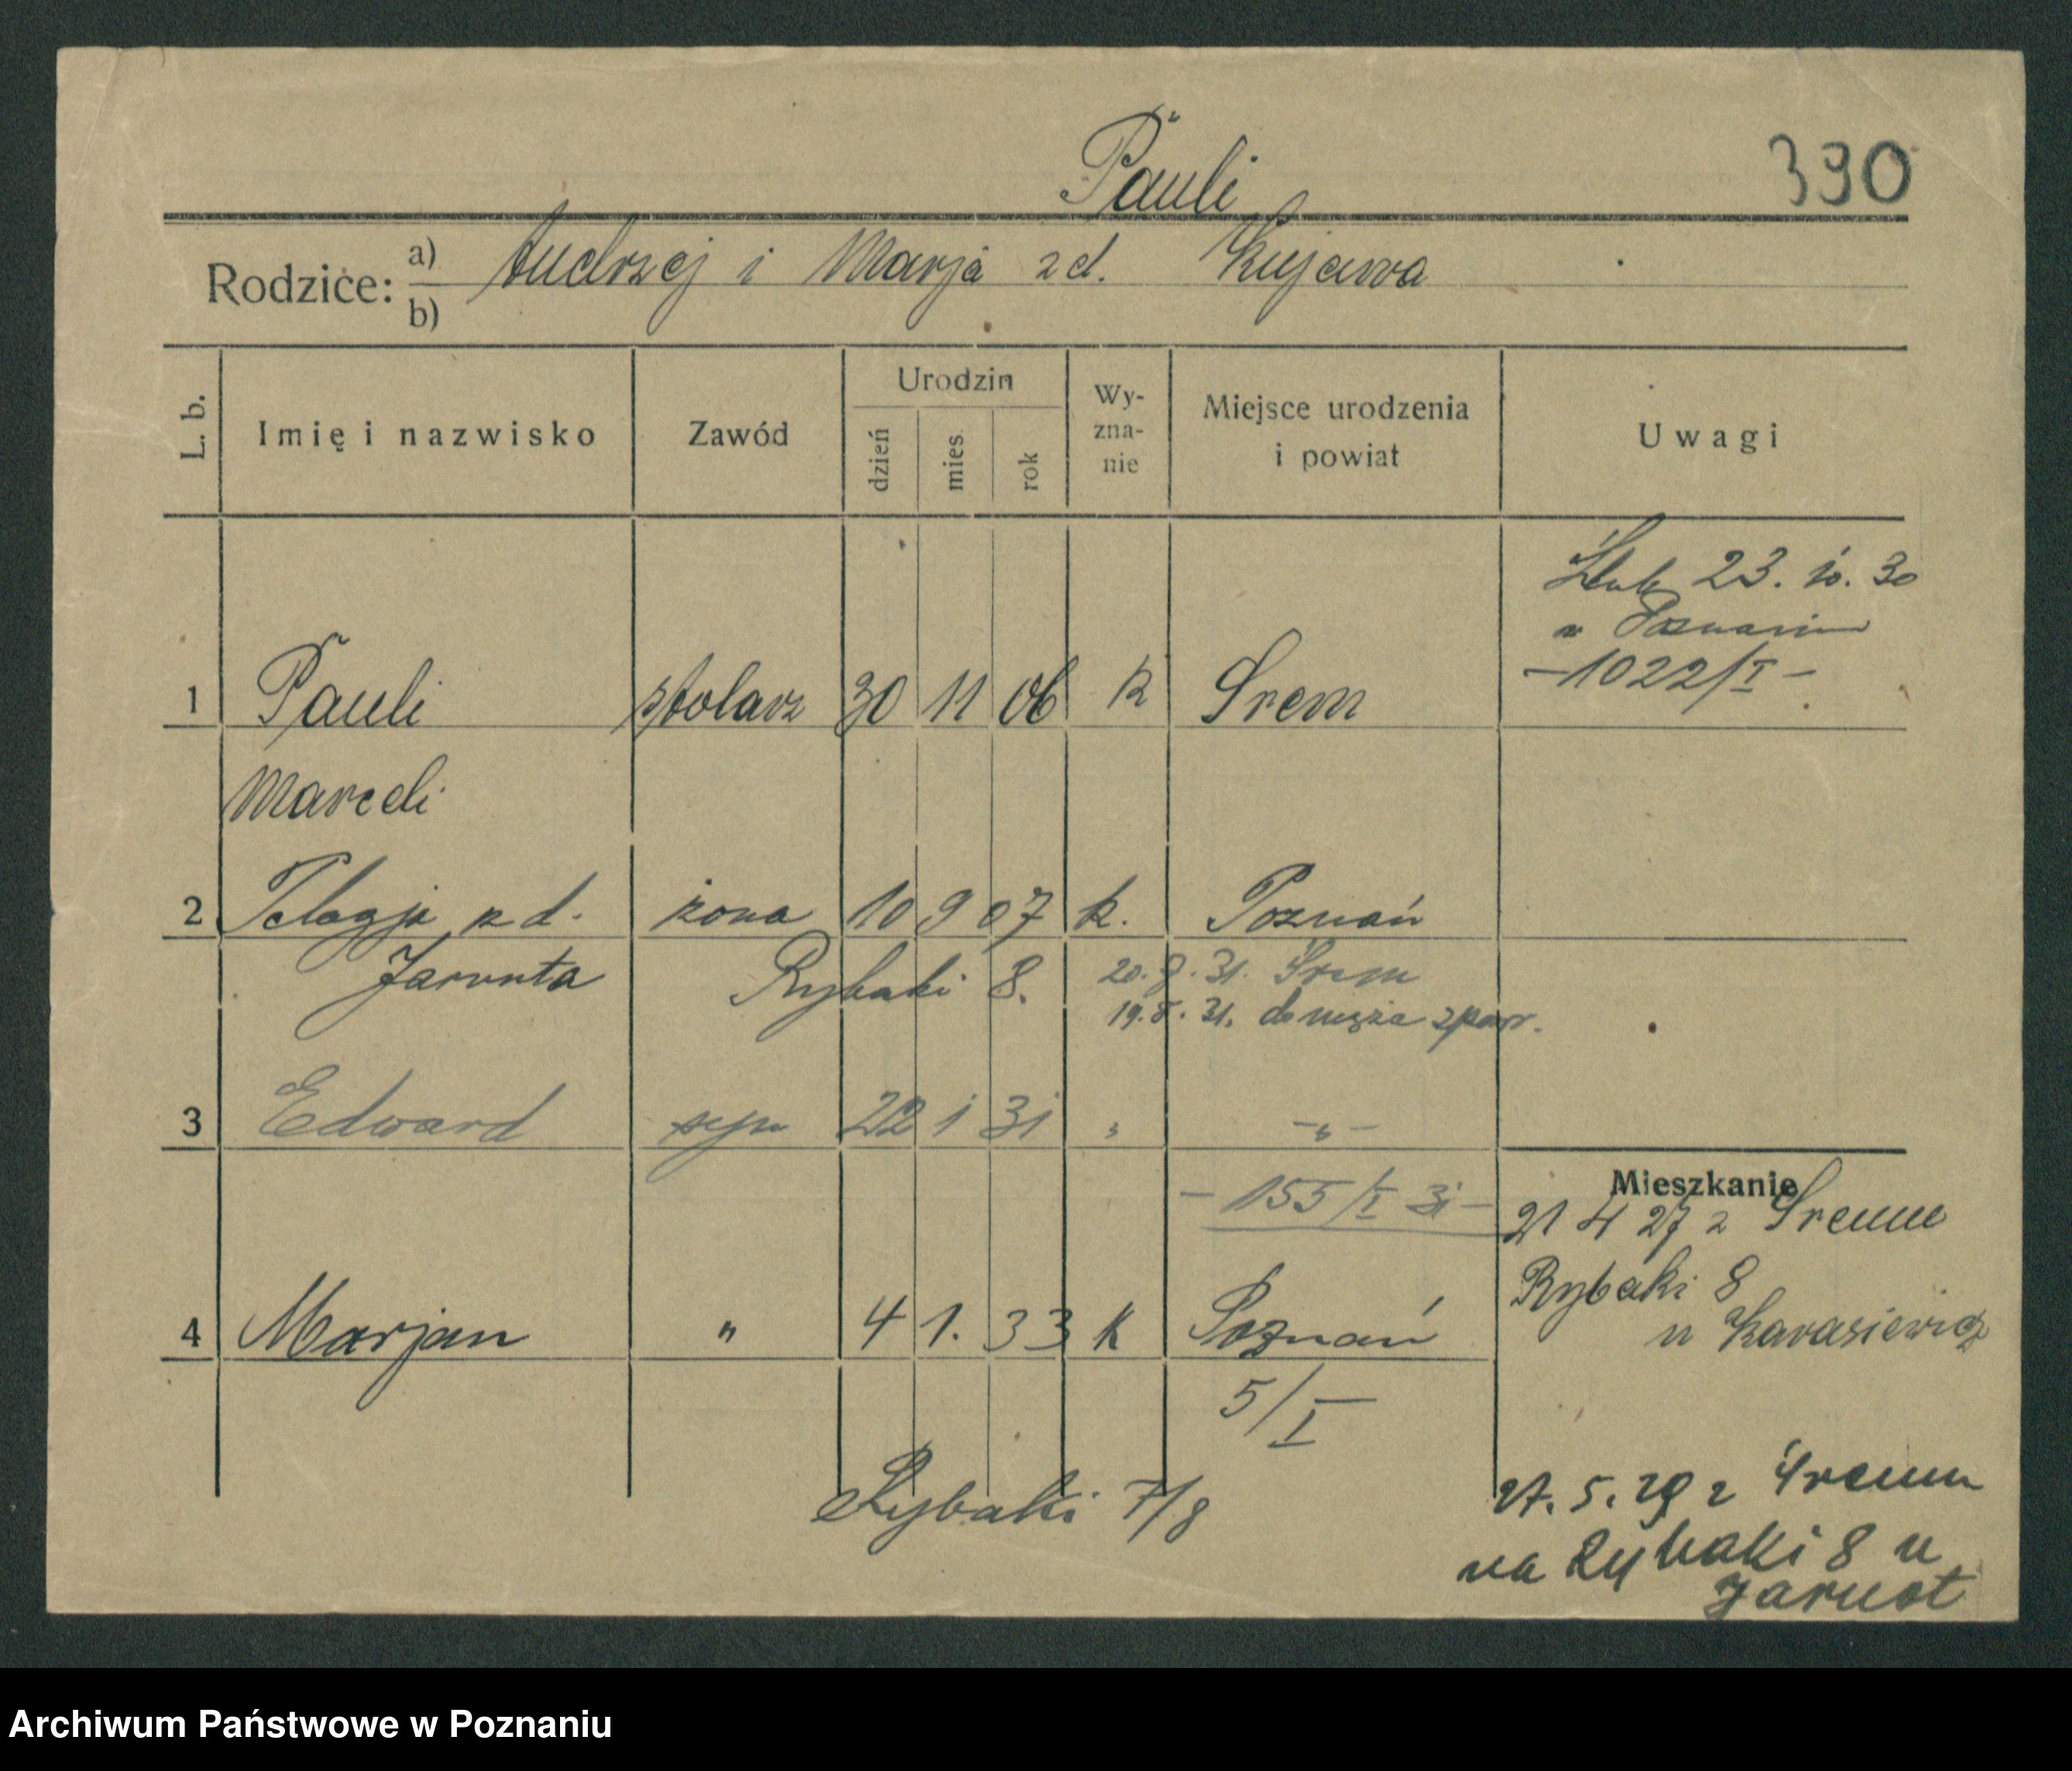 Pauli
390
Rodzice: a) Andrzej i Marja z d. Kujawa
b)
L. b. Imię i nazwisko Zawód Urodzin dzień mies. rok Wy-zna-nie Miejsce urodzenia i powiat Uwagi
Ślub 23. 10. 30
w Poznaniu
-1022/I-
1 Pauli stolarz 30 11 06 k Śrem
Marceli
2 Pelagja z d. żona 10 9 07 k. Poznań
Jarunta Rybaki 8. 20. 31. Śrem
19. 31. do męża
3 Edward syn 22 1 31 " -"-
-155/I 31-
Mieszkanie
21 4 27 z Śremu
Rybaki 8
u Karasiewicz
4 Marjan " 4 1. 33 k Poznań
5/I
Rybaki 7/8
27. 5. 29 z Śremu
na Rybaki 8 u
Jarnot
Archiwum Państwowe w Poznaniu